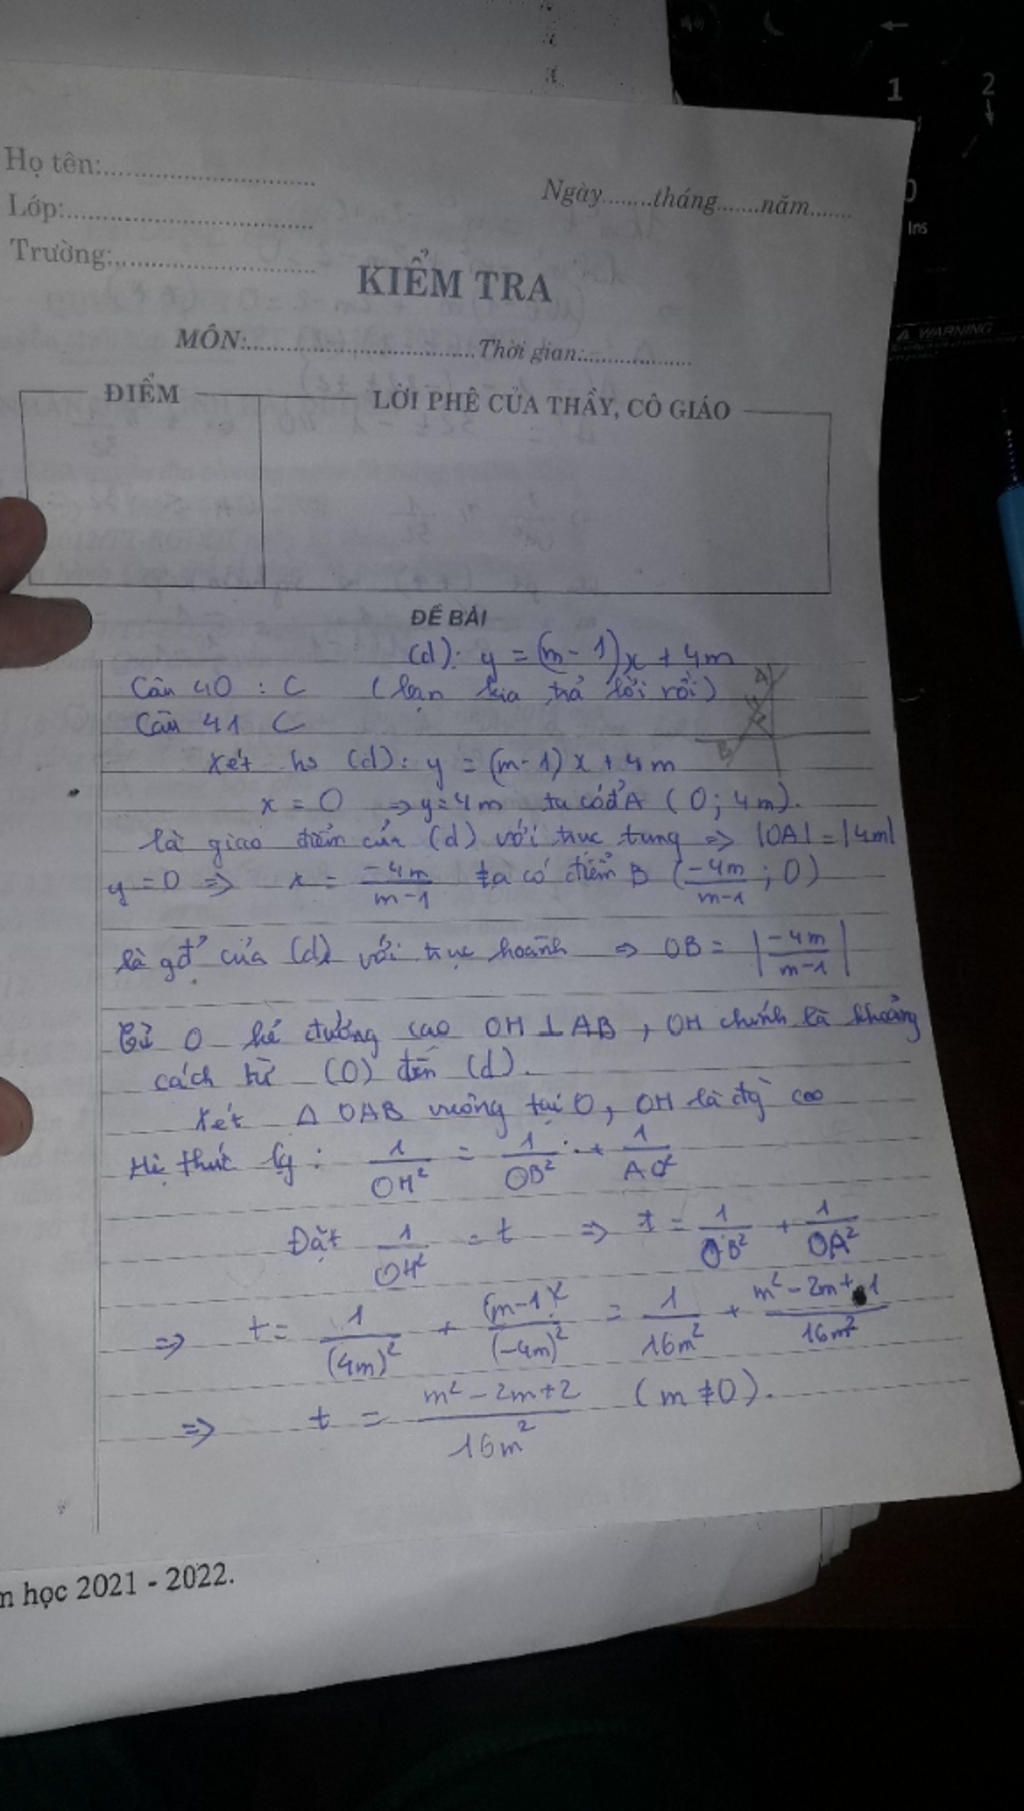 Họ tên:
Lớp:
Trường:
Ngày.......tháng.......năm.......
KIỂM TRA
MÔN: Thời gian:
ĐIỂM
LỜI PHÊ CỦA THẦY, CÔ GIÁO
ĐỀ BÀI
(d): y = (m-1)x + 4m
Câu 40 : C (bạn kia trả lời rồi)
Câu 41 C
Xét hs (d): y = (m-1)x + 4m
x = 0 => y = 4m ta có đ' A (0; 4m).
là giao điểm của (d) với trục tung => |OA| = |4m|
y = 0 => x = -4m/(m-1) ta có điểm B (-4m/(m-1); 0)
là gđ' của (d) với trục hoành => OB = |-4m/(m-1)|
Từ O kẻ đường cao OH ⊥ AB, OH chính là khoảng
cách từ (O) đến (d).
Xét Δ OAB vuông tại O, OH là đg cao
Hệ thức lg: 1/OH² = 1/OB² + 1/AO²
Đặt 1/OH² = t => t = 1/OB² + 1/OA²
=> t = 1/(4m)² + (m-1)²/(-4m)² = 1/16m² + (m²-2m+1)/16m²
=> t = (m²-2m+2)/16m² (m≠0).
học 2021 - 2022.
1
2
Ins
WARNING
A
B